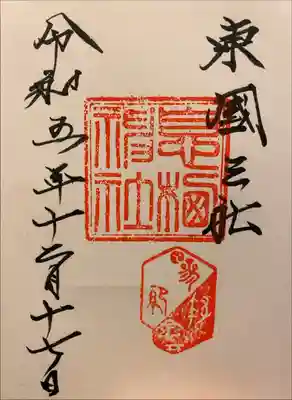 東國三社
息栖神社
令和五年十二月十七日